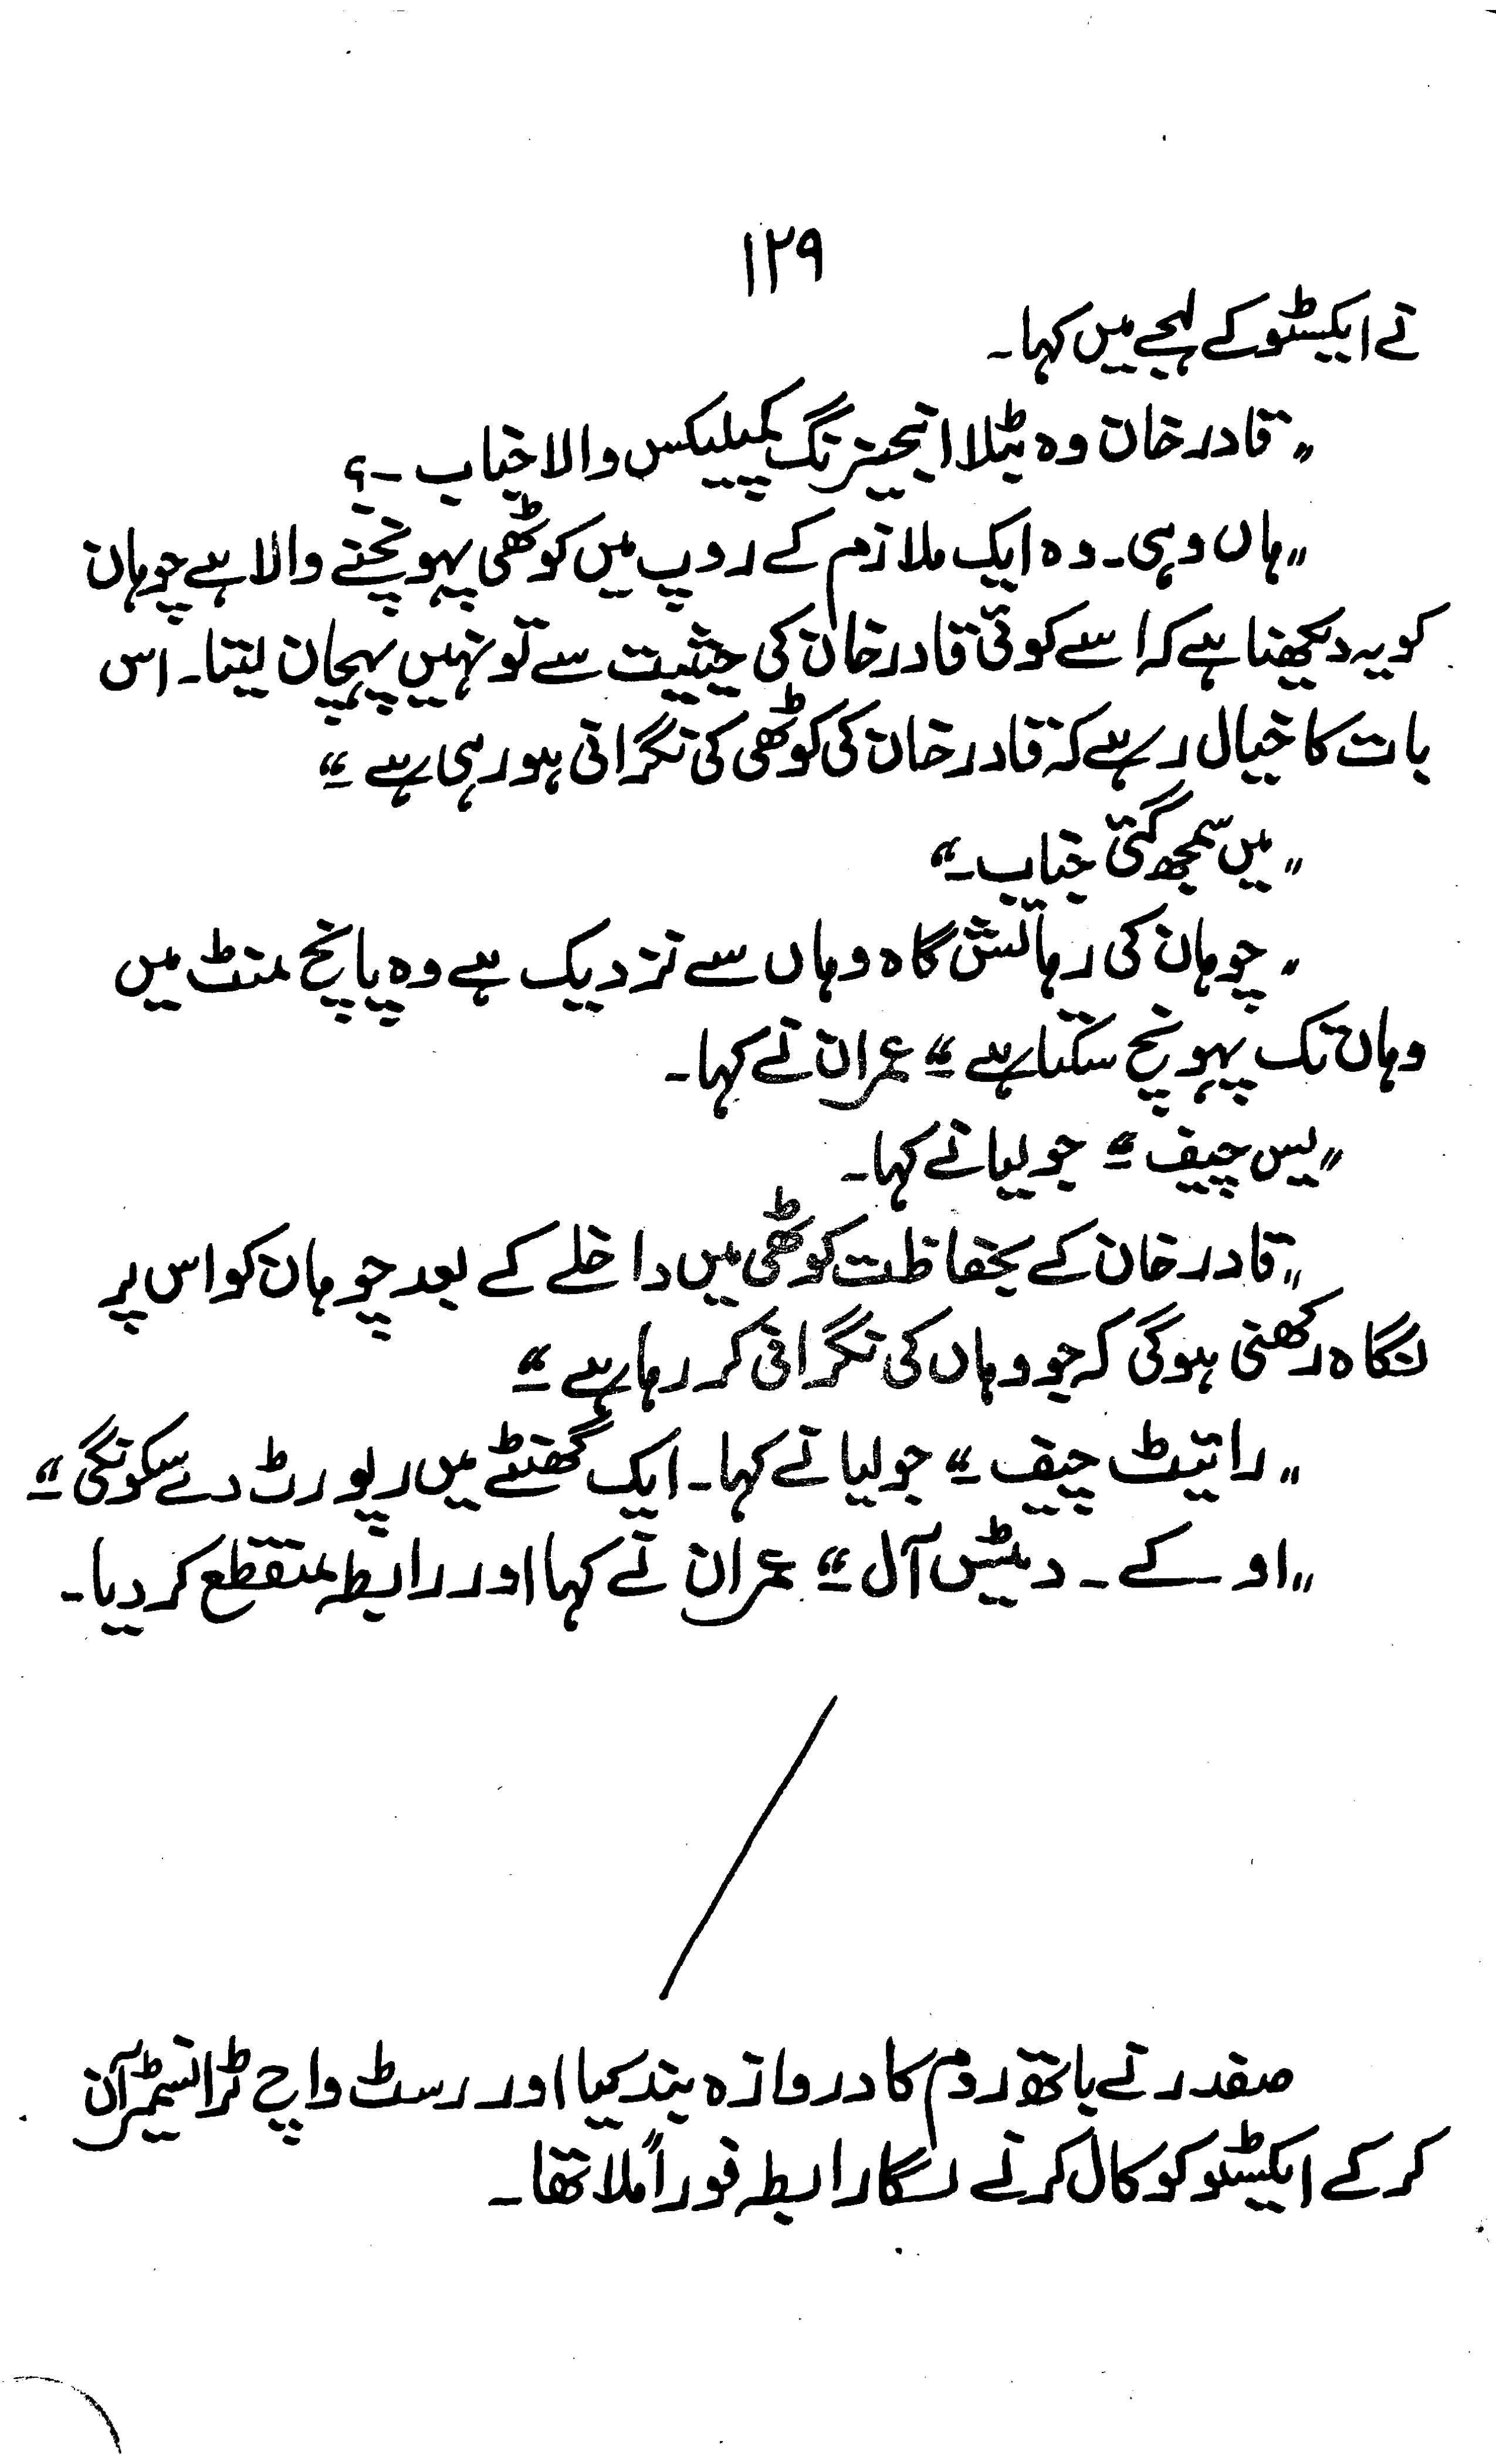 ۱۲۹
نے ایکسٹو کے لہجے میں کہا۔
"قادر خان وہ ٹیلا انجینرنگ کمپلیکس والا جناب ۔؟
"ہاں وہی۔ وہ ایک ملازم کے روپ میں کوٹھی پہونچنے والا ہے چوہان
کو یہ دیکھنا ہے کہ اسے کوئی قادر خان کی حیثیت سے تو نہیں پہچان لیتا۔ اس
بات کا خیال رہے کہ قادر خان کی کوٹھی کی نگرانی ہو رہی ہے"
"میں سمجھ گئی جناب۔"
"چوہان کی رہائش گاہ وہاں سے نزدیک ہے وہ پانچ منٹ میں
وہاں تک پہونچ سکتا ہے" عمران نے کہا۔
"یس چیف" جولیا نے کہا۔
"قادر خان کے بحفاظت کوٹھی میں داخلے کے بعد چوہان کو اس پر
نگاہ رکھنی ہوگی کہ جو وہاں کی نگرانی کر رہا ہے"
"رائیٹ چیف" جولیا نے کہا۔ ایک گھنٹے میں رپورٹ دے سکونگی"
"او کے ۔ دیٹس آل" عمران نے کہا اور رابطہ منقطع کر دیا۔
صفدر نے باتھ روم کا دروازہ بند کیا اور رسٹ واچ ٹرانسمیٹر آن
کر کے ایکسٹو کو کال کرنے لگا رابطہ فوراً ملا تھا۔